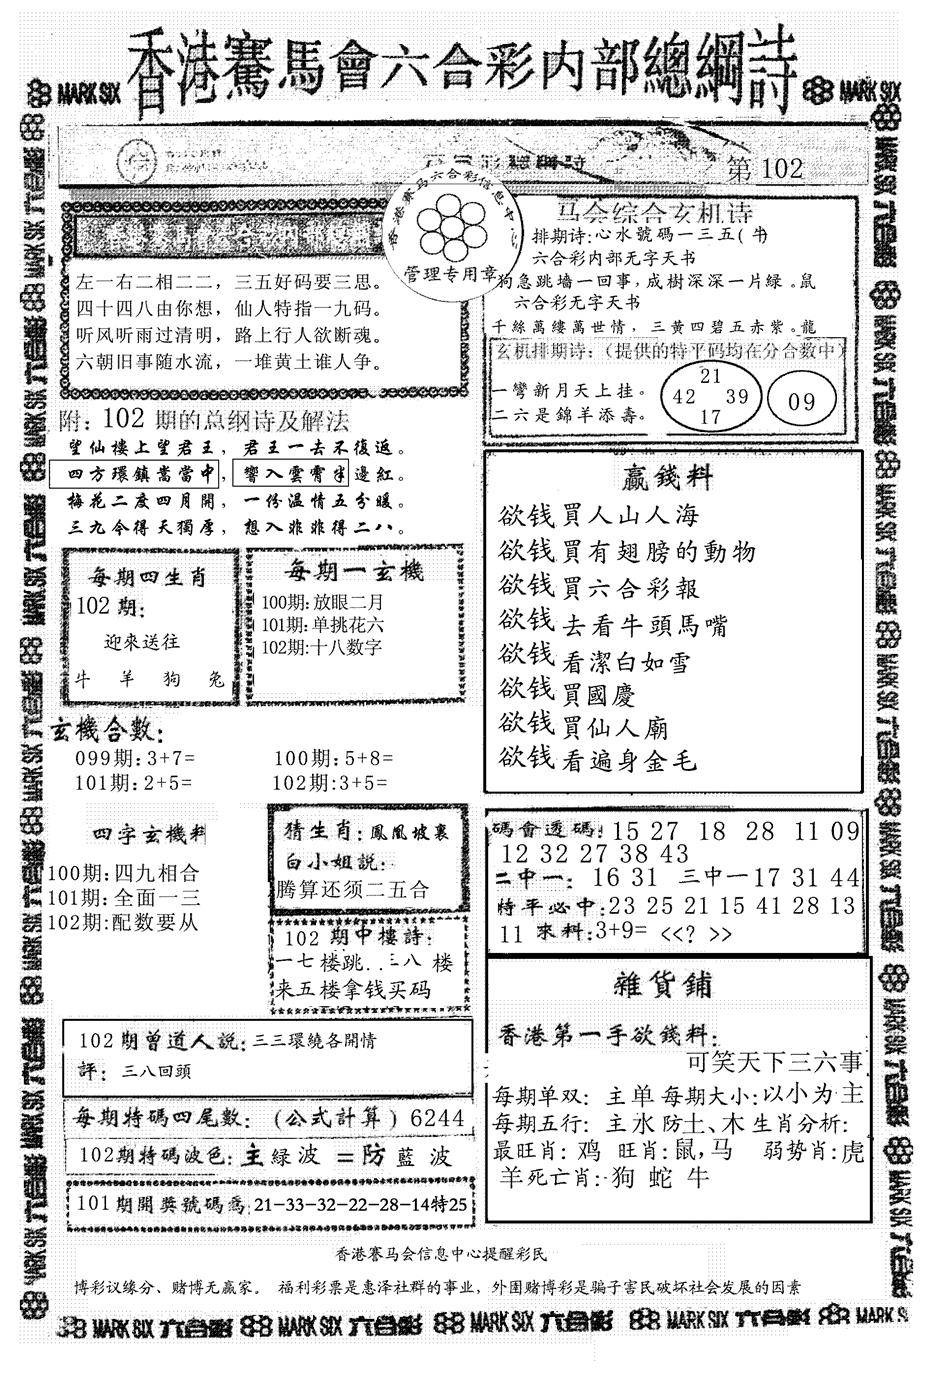 香港賽馬會六合彩内部總綱詩
MARK SIX
MARK SIX
第 102
香港赛马六合彩信息中
管理专用章
左一右二相二二，三五好码要三思。
四十四八由你想，仙人特指一九码。
听风听雨过清明，路上行人欲断魂。
六朝旧事随水流，一堆黄土谁人争。
附: 102 期的总纲诗及解法
望仙樓上望君王，君王一去不復返。
四方環鎮嵩當中，響入雲霄半邊紅。
梅花二度四月開，一份温情五分暖。
三九今得天獨厚，想入非非得二八。
马会综合玄机诗
排期诗:心水號码一三五(牛
六合彩内部无字天书
狗急跳墙一回事,成樹深深一片绿。鼠
六合彩无字天书
千絲萬縷萬世情，三黄四碧五赤紫。龍
玄机排期诗:（提供的特平码均在分合数中）
一彎新月天上挂。
二六是錦羊添壽。
21
42 39
17
09
每期四生肖
102 期:
迎來送往
牛 羊 狗 兔
每期一玄機
100期:放眼二月
101期:单挑花六
102期:十八数字
玄機合數:
099期:3+7= 100期:5+8=
101期:2+5= 102期:3+5=
四字玄機料
100期:四九相合
101期:全面一三
102期:配数要从
猜生肖:鳳凰坡裏
白小姐説:
腾算还须二五合
102 期中樓詩:
一七楼跳..三八 楼
来五楼拿钱买码
赢錢料
欲钱買人山人海
欲钱買有翅膀的動物
欲钱買六合彩報
欲钱去看牛頭馬嘴
欲钱看潔白如雪
欲钱買國慶
欲钱買仙人廟
欲钱看遍身金毛
碼會透碼: 15 27 18 28 11 09
12 32 27 38 43
二中一: 16 31 三中一17 31 44
特平必中:23 25 21 15 41 28 13
11 來料:3+9= <<? >>
雜貨鋪
香港第一手欲錢料:
可笑天下三六事
每期单双: 主单 每期大小:以小为主
每期五行: 主水防土、木生肖分析:
最旺肖: 鸡 旺肖:鼠,马 弱势肖:虎
羊死亡肖:狗 蛇 牛
102期曾道人説:三三環繞各開情
評: 三八回頭
每期特碼四尾數: (公式計算) 6244
102期特碼波色:主綠波 =防藍波
101期開獎號碼爲:21-33-32-22-28-14特25
香港赛马会信息中心提醒彩民
博彩议缘分、赌博无赢家。 福利彩票是惠泽社群的事业，外围赌博彩是骗子害民破坏社会发展的因素
MARK SIX 六合彩 MARK SIX 六合彩 MARK SIX 六合彩 MARK SIX 六合彩 MARK SIX